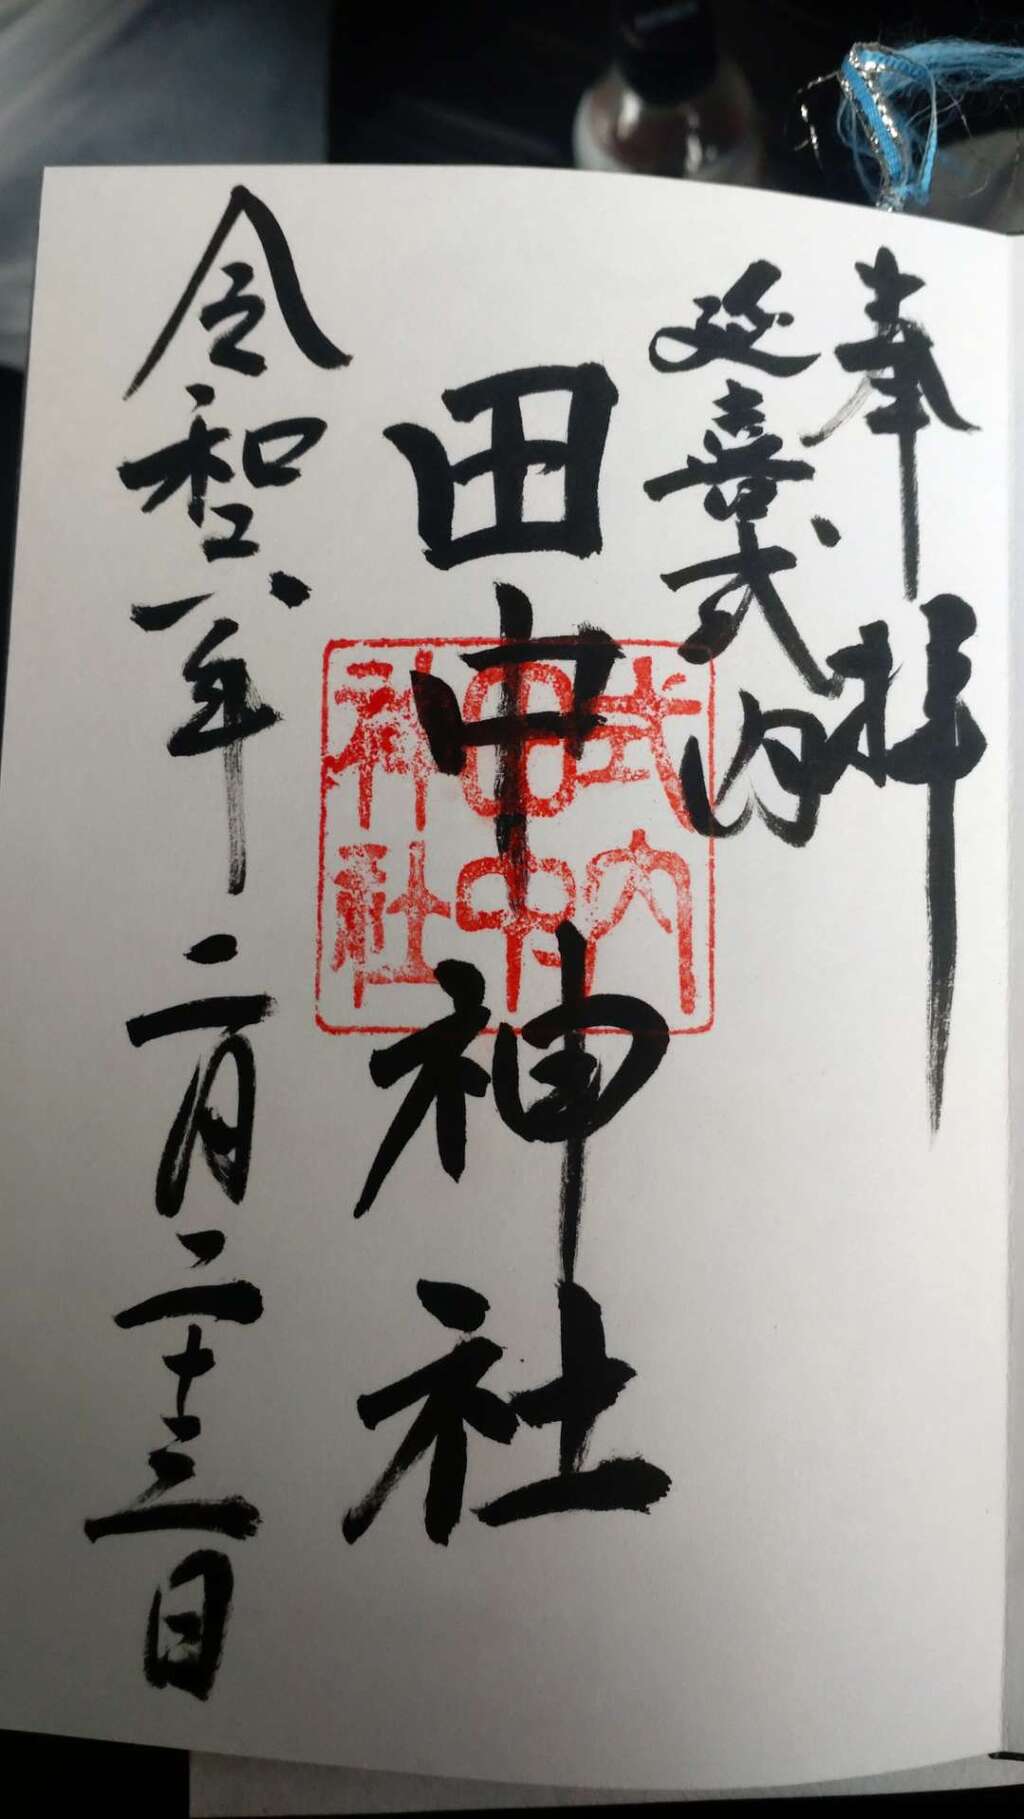 奉拝
延喜式内
田中神社
令和六年二月二十三日
式内
田中
神社